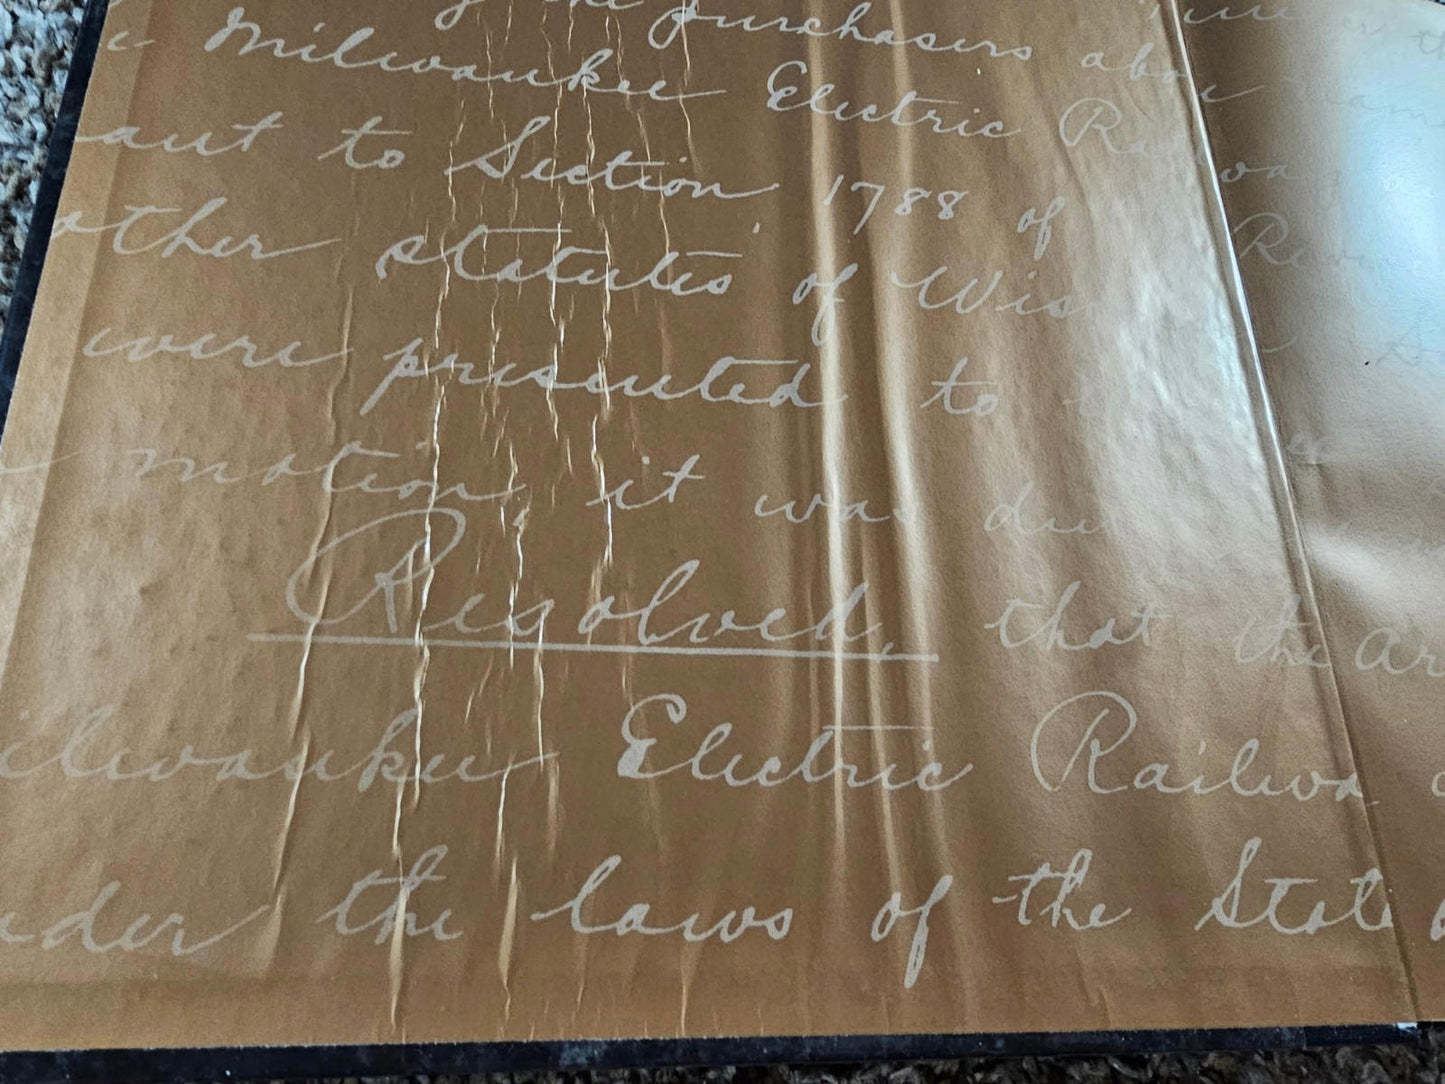 the purchasers abov
Milwaukee Electric Railwa
uant to Section 1788 of Revi
other statutes of Wis
were presented to
motion, it was du
Resolved, that the Ar
ilwaukee Electric Railwa
nder the laws of the State